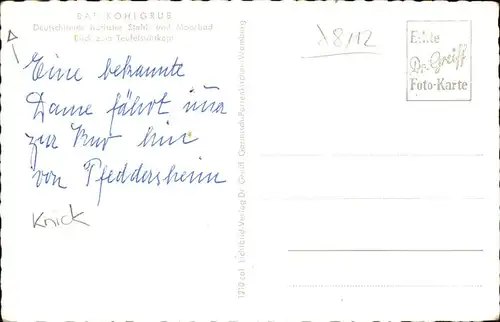 BAD KOHLGRUB
Deutschlands höchstes Stahl- und Moorbad
Blick zum Teufelstättkopf
Eine bekannte
Dame fährt immer
zur Kur hin
von Pfeddersheim
Knick
18/12
Echte
Dr. Greiff
Foto-Karte
1910 col Lichtbild-Verlag Dr. Greiff Garmisch-Partenkirchen-Wamberg